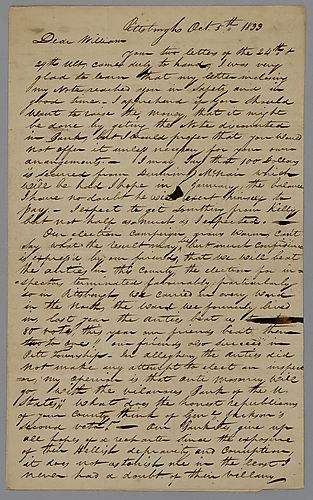 Pittsburgh Oct 5th 1833
Dear William
your two letters of the 24th &
29th Ult. came duly to hand, I was very
glad to learn that my letter inclosing
my Note reached you in safety and in
good time. I apprehend if you should
want to raise the money, that it might
be done by getting the Note discounted
in Bank, but I would prefer that you would
not offer it unless necessary for your own
arrangements. I may say that 100 Dollars
is secured from McNair which
will be had I hope in January, the balance
I have no doubt he will himself to
pay. I expect to get something from Kelly
but not half as much as I expected.
Our election campaign grows warm cant
say what the result may, but much confidence
is expressed by our friends, that we will beat
the anties in this County, the election for in-
spectors terminated favourably particularly
so in Pittsburgh we carried in every ward
in the North Ward we formerly lived
in last year the anties beat us
80 votes, this year our friends beat them
two to one!! our friends also succeed in
Pitt township. In Allegheny the anties did
not make any attempt to elect an inspec
or, my opinion is that anti masonry will
go with the villainous Bank of the U
States; What does the honest republicans
of your County think of Genl Jackson's
second veto? Our Bankites give up
all hopes of a recharter since the exposure
of their Hellish depravity and Corruption,
it does not astonish me in the least I
never had a doubt of their villany